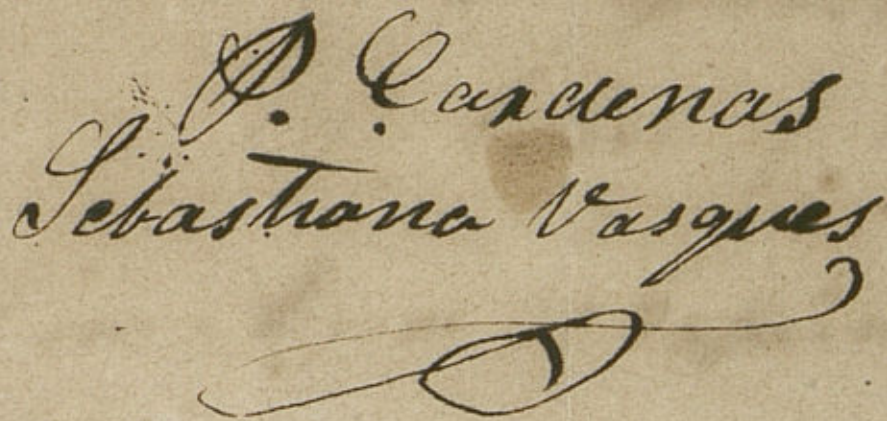 P. Cardenas
Sebastiana Vasques